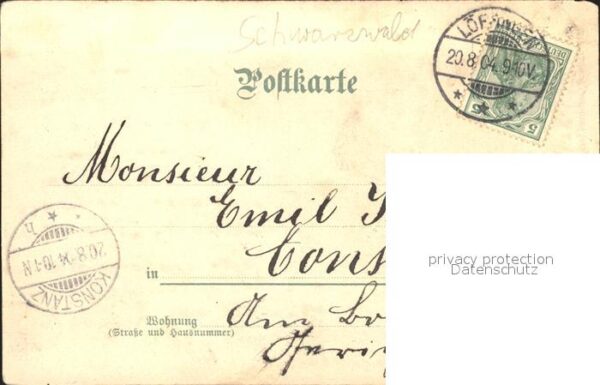 Schwarzwald
LÖFFINGEN
20.8.04.9-10V.
DEUTSCHES
5 5
Postkarte
Monsieur
Emil
Cons
privacy protection
Datenschutz
in
20.8.04.10-11N
h
KONSTANZ
Wohnung
(Straße und Hausnummer)
Am